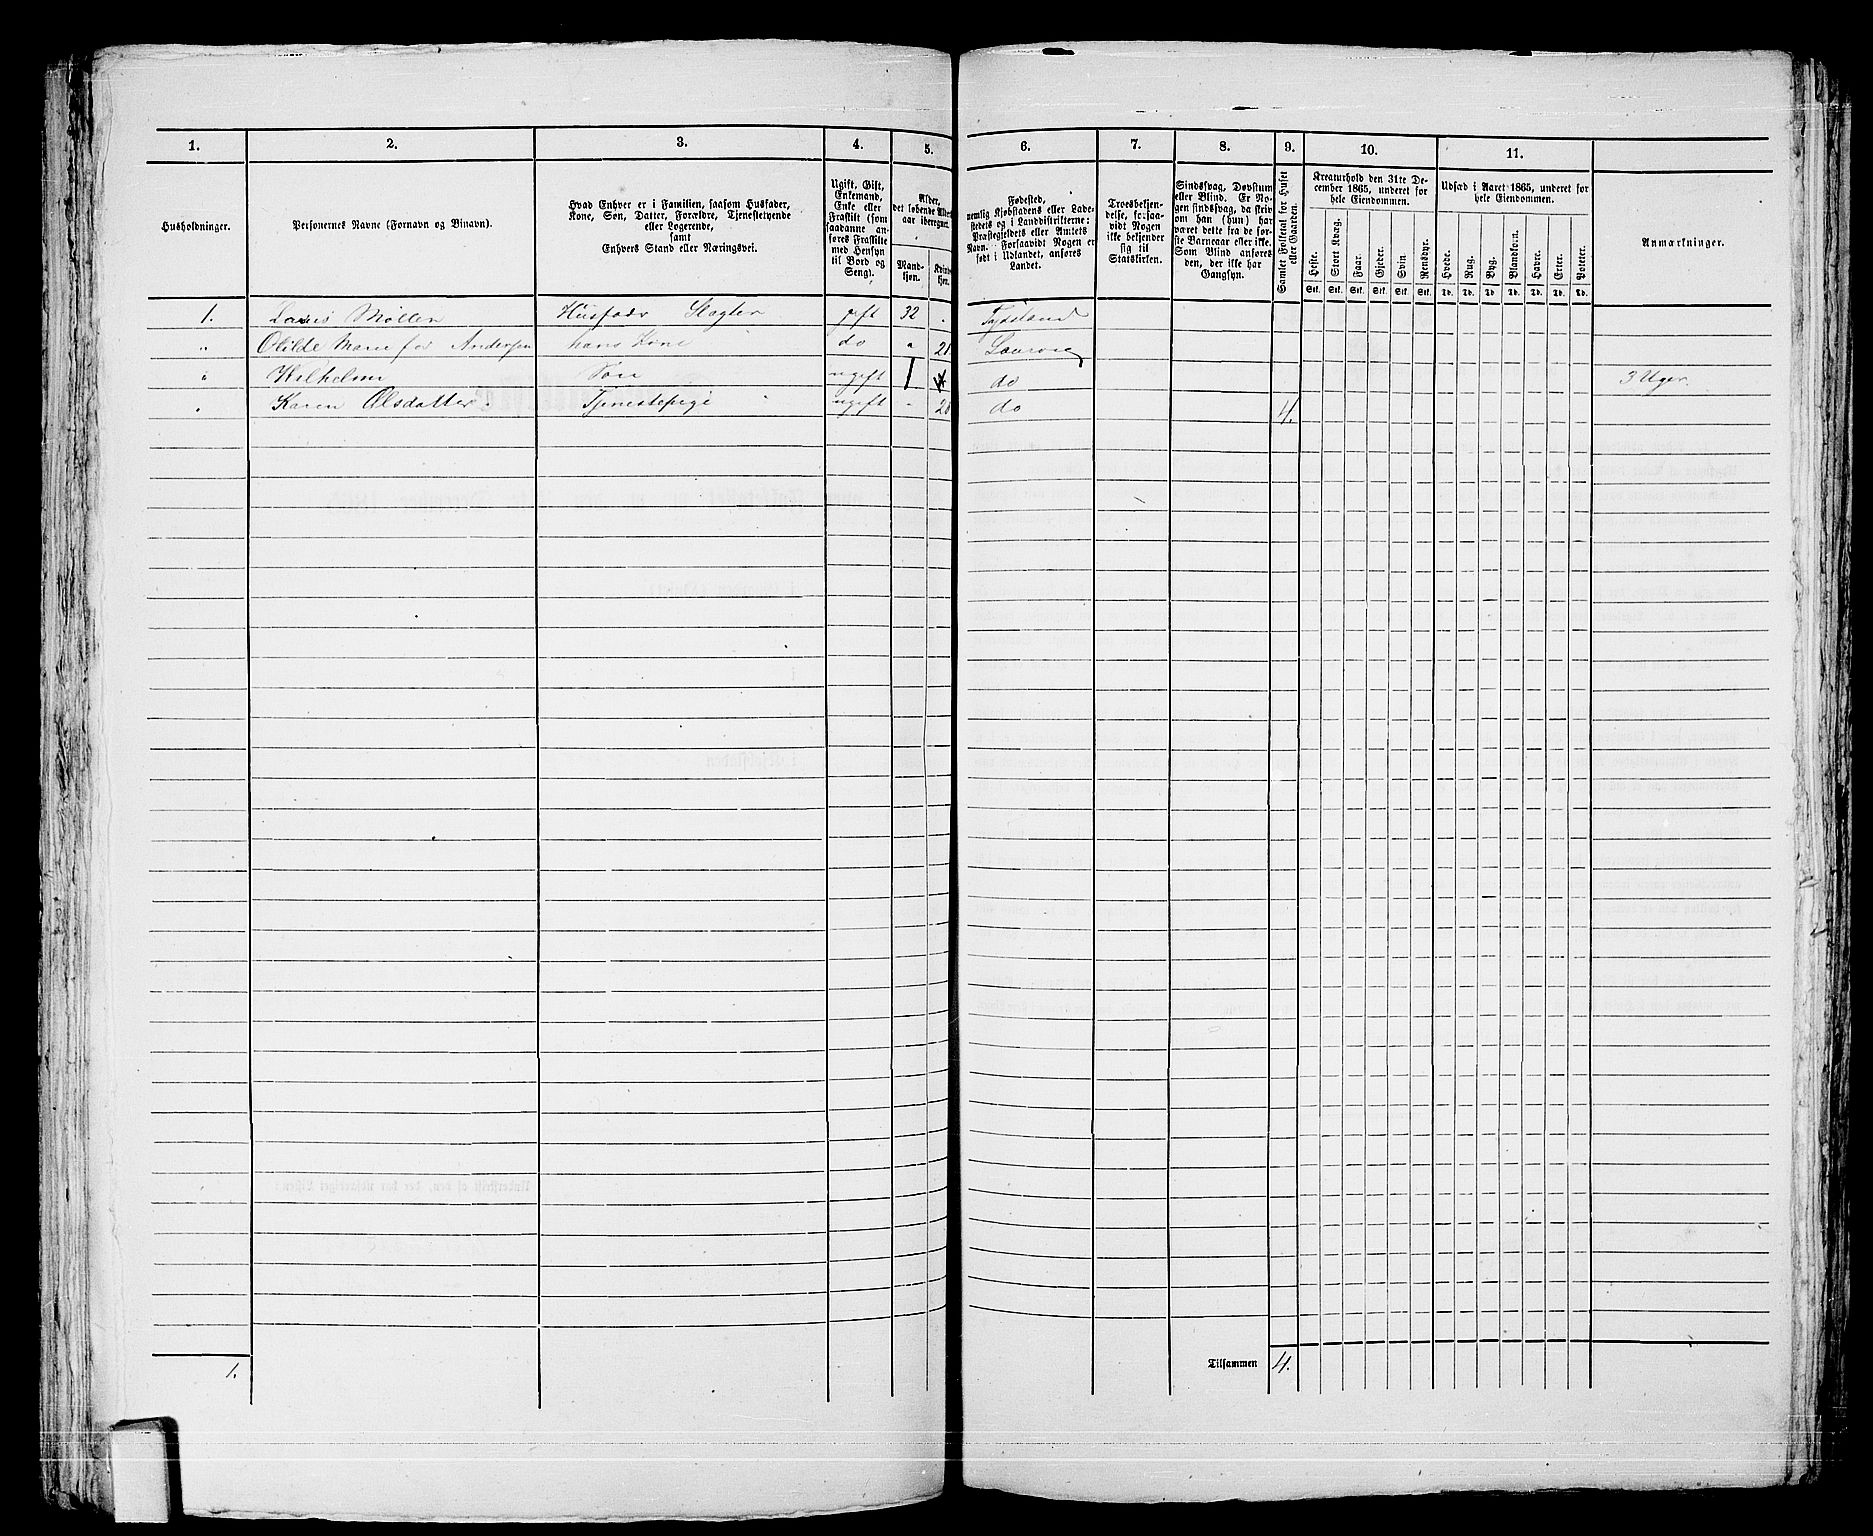 1. 2. 3. 4. 5. 6. 7. 8. 9. 10. 11.
Husholdninger.
Personernes Navne (Fornavn og Binavn).
Hvad Enhver er i Familien, saasom Husfader,
Kone, Søn, Datter, Forældre, Tjenestetyende
eller Logerende,
samt
Enhvers Stand eller Næringsvei.
Ugift, Gift,
Enkemand,
Enke eller
Fraskilt (som
saadanne an-
føres Fraskilte
med Hensyn
til Bord og
Seng).
Alder,
det løbende Alders-
aar iberegnet.
Mand-
kjøn.
Kvinde-
kjøn.
Fødested,
nemlig Kjøbstadens eller Lade-
stedets og i Landdistrikterne:
Præstegjeldets eller Amtets
Navn. Forsaavidt Nogen er
født i Udlandet, anføres
Landet.
Troesbekjen-
delse, forsaa-
vidt Nogen
ikke bekjender
sig til
Statskirken.
Sindssvag, Døvstum
eller Blind. Er No-
gen sindssvag, da skriv
om han (hun) har
været dette fra de før-
ste Barneaar eller ikke.
Som Blind anføres
den, der ikke har
Gangsyn.
Samlet Folketal for Huset
eller Gaarden.
Kreaturhold den 31te De-
cember 1865, underet for
hele Eiendommen.
Heste. Stort Kvæg. Faar. Gjeder. Svin. Rensdyr.
Stk. Stk. Stk. Stk. Stk. Stk.
Udsæd i Aaret 1865, underet for
hele Eiendommen.
Hvede. Rug. Byg. Blandkorn. Havre. Erter. Poteter.
Td. Td. Td. Td. Td. Td. Td.
Anmærkninger.
1. Møller Husfader Slagter gift 32 Tydskland
" Olilde Marie før Andersen hans Kone do " 21 Laurvig
" Wilhelm Søn ugift 1 do 3 Uger.
" Karen Olsdatter Tjenestepige ugift - 20 do 4.
1. Tilsammen 4.